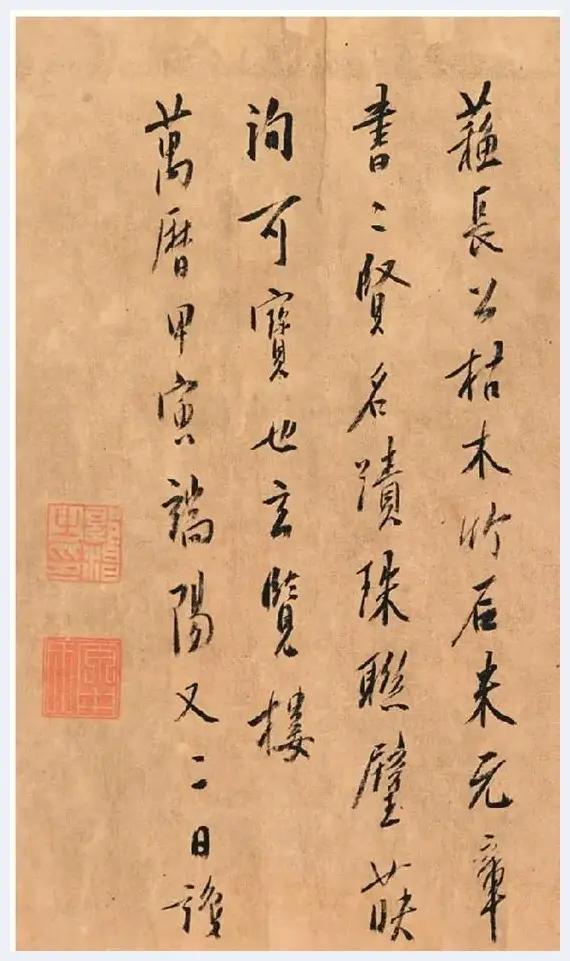 蘓長公枯木竹石米元章
書二賢名蹟珠聯璧暎
詢可寶也玄覽樓
萬曆甲寅端陽又二日